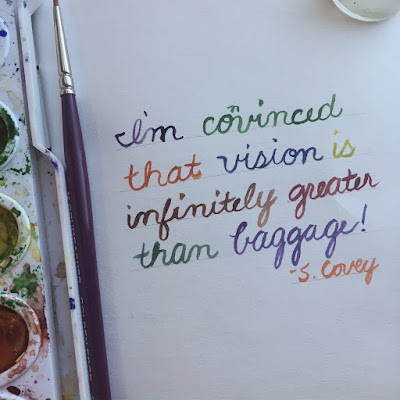 I'm convinced
that vision is
infinitely greater
than baggage!
-S. Covey